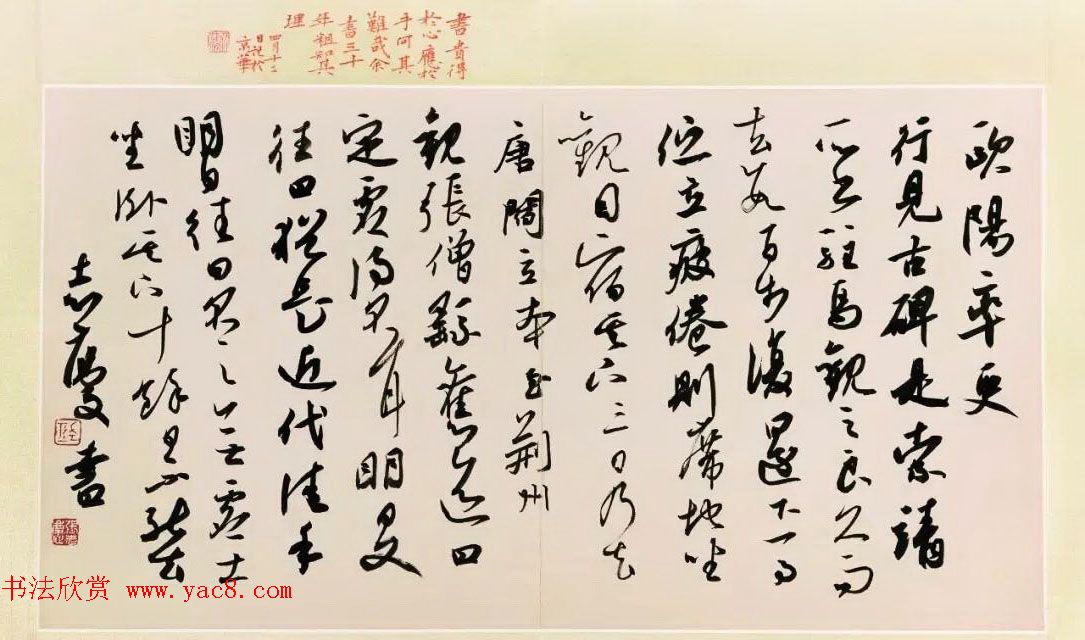 書貴得
於心應於
手何其
難哉余
書三十
年粗知其
理
四月十二
日記於
京華
欧陽率更
行見古碑是索靖
所書駐馬觀之良久而
去数百步復還下馬
伫立疲倦則席地坐
觀因宿其下三日乃去
唐閻立本至荆州
観張僧繇舊迹曰
定虚得名耳明日又
往曰猶是近代佳手
明日往曰名之下无虚士
坐卧其下十餘日不能去
志慶書
书法欣赏 www.yac8.com